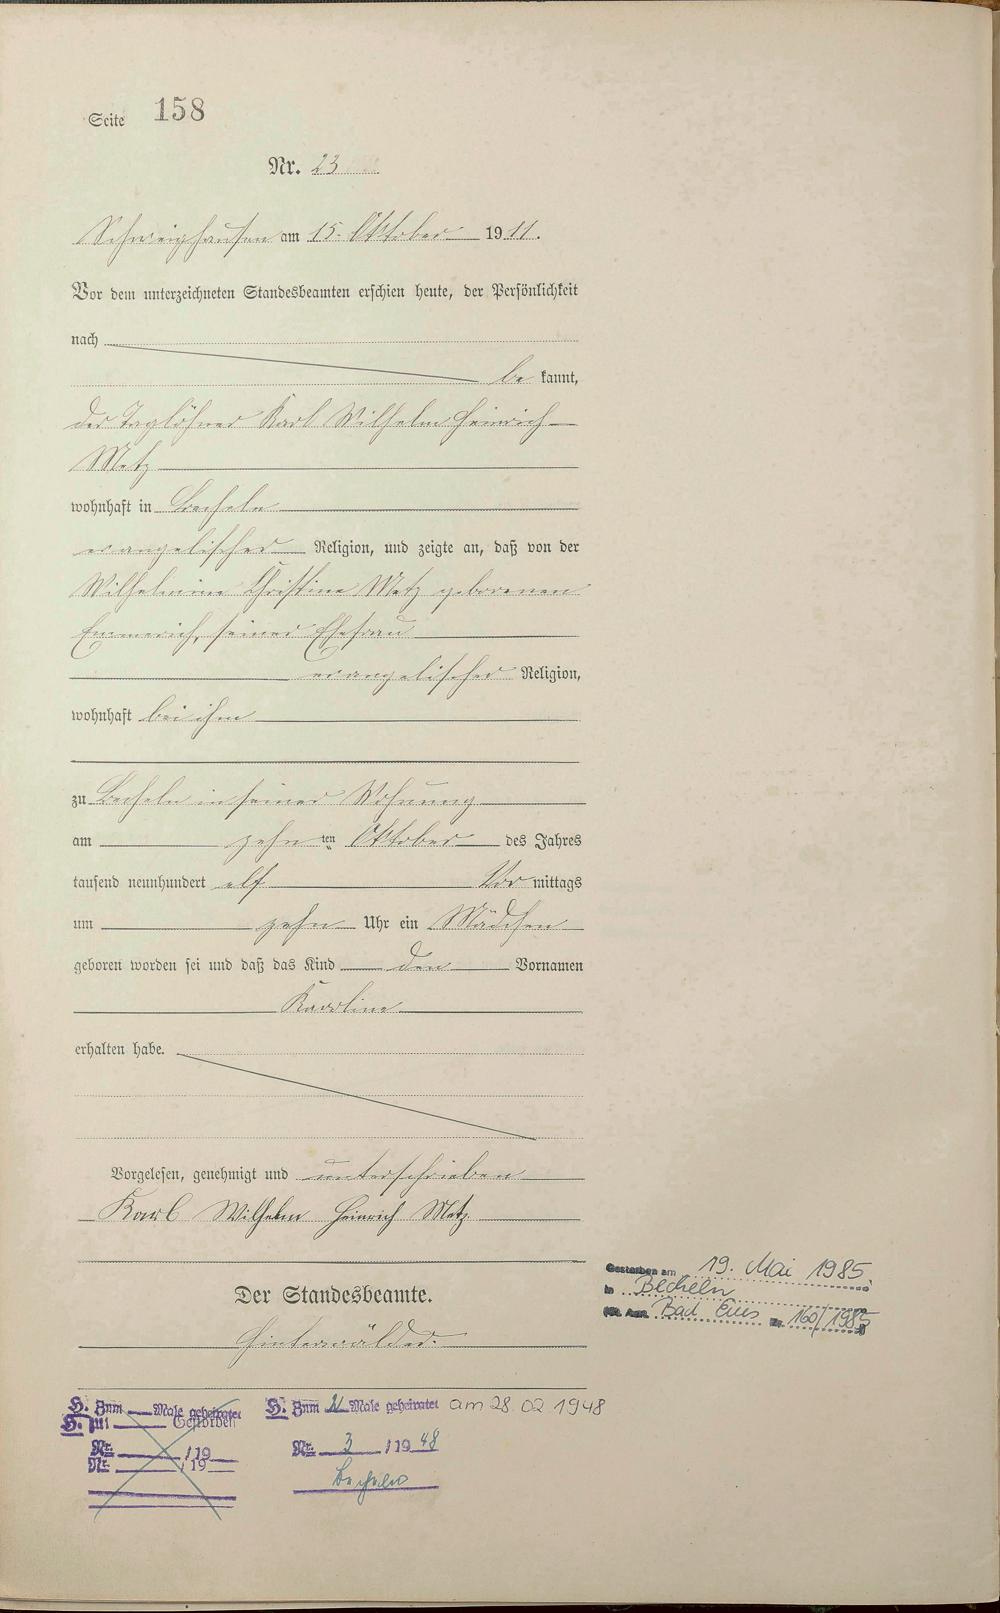 Seite 158
Nr. 23
Schweighausen am 15. Oktober 1911.
Vor dem unterzeichneten Standesbeamten erschien heute, der Persönlichkeit
nach
be kannt,
der Taglöhner Karl Wilhelm Heinrich
Metz
wohnhaft in Becheln
evangelischer Religion, und zeigte an, daß von der
Wilhelmine Christine Metz geborenen
Emmerich, seiner Ehefrau
evangelischer Religion,
wohnhaft bei ihm
zu Becheln in seiner Wohnung
am zehn ten Oktober des Jahres
tausend neunhundert elf Vor mittags
um zehn Uhr ein Mädchen
geboren worden sei und daß das Kind den Vornamen
Karoline
erhalten habe.
Vorgelesen, genehmigt und unterschrieben
Karl Wilhelm Heinrich Metz
Der Standesbeamte.
Hinterwälder.
Gestorben am 19. Mai 1985
in Becheln
Bad Ems Nr. 160/1985
H. Zum Male geheiratet
Gestorben
Nr. /19
Nr. /19
H. Zum Male geheiratet am 28 02 1948
Nr. 3 /1948
Becheln